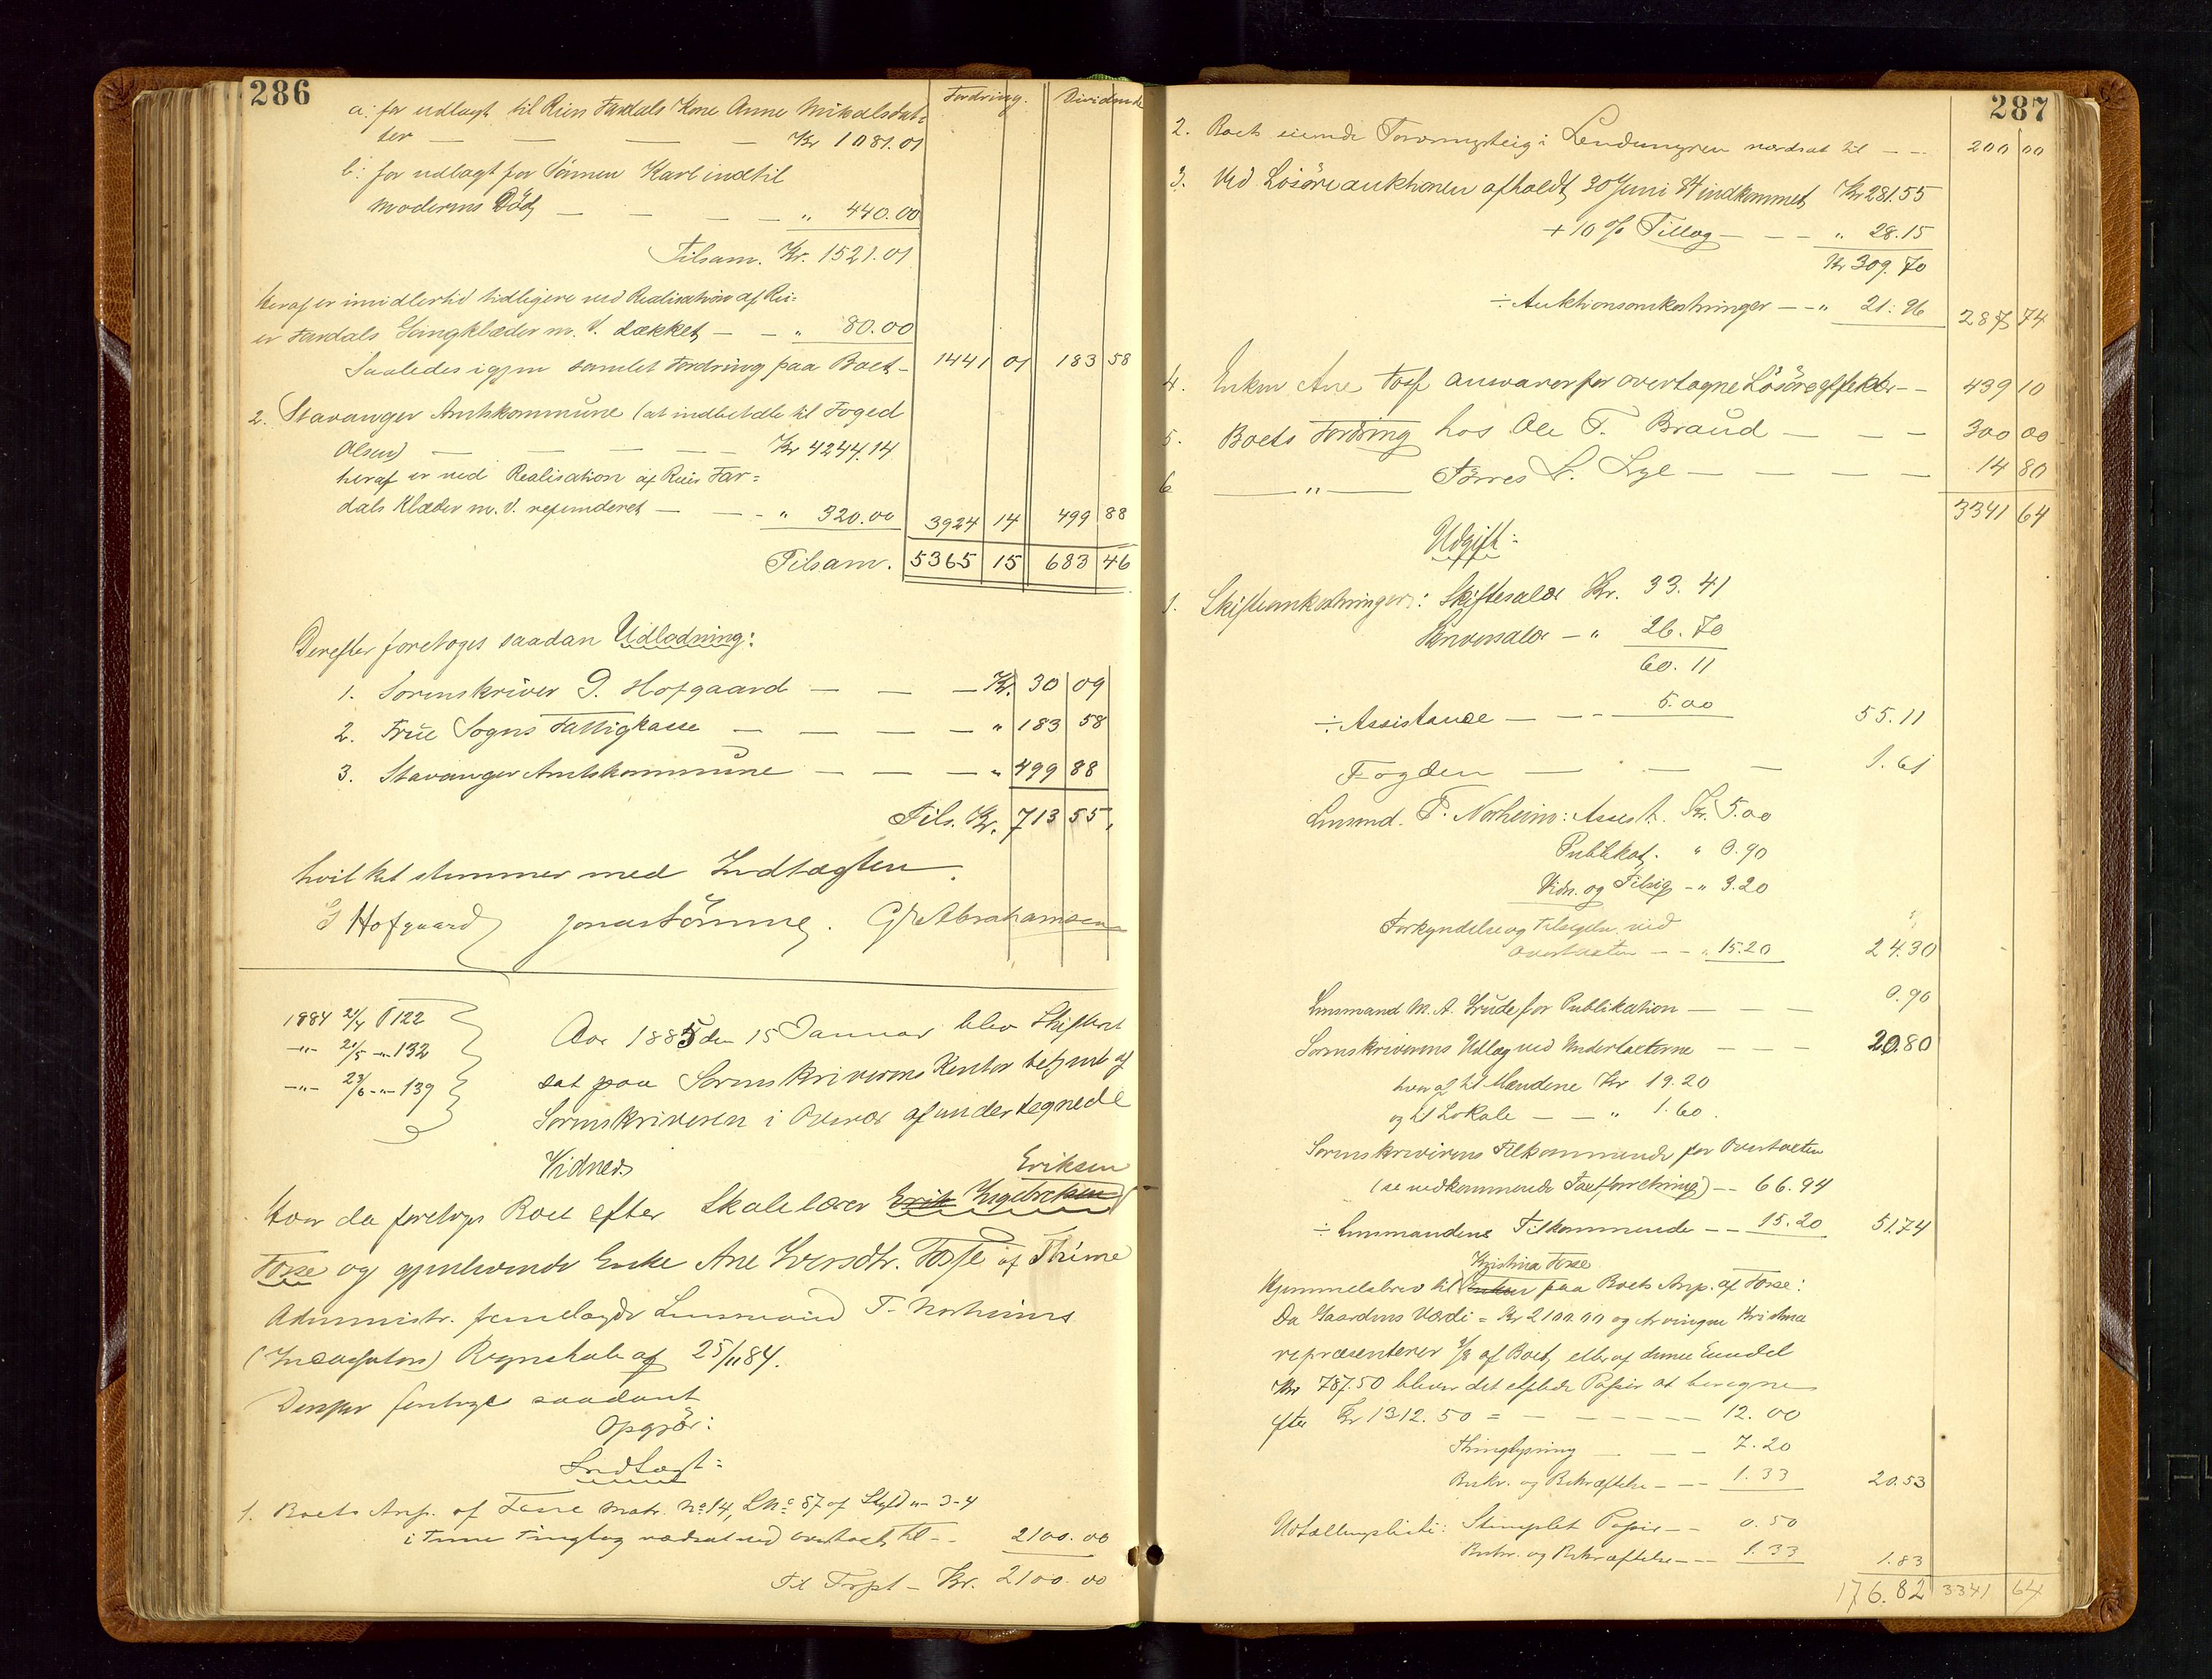 286
Fordring. Dividende
a: for udlagt til Reiers Fardals Kone Anne Mikalsdat-
ter — — — — Kr 1081.01
b: for udlagt for Sönnen Karl indtil
Moderens Död — — — — " 440.00
Tilsam. Kr. 1521.01
heraf er imidlertid tidligere ved Realisation af Rei-
er Fardals Gangklæder m. V. dækket — — " 80.00
Saaledes igjen samlet Fordring paa Boet — 1441 01 183 58
2. Stavanger Amtskommune (at indbetale til Foged
Olsen) — — — — Kr 4244.14
heraf er ved Realisation af Reier Far-
dals Klæder m. V. refunderet — — " 320.00 3924 14 499 88
Tilsam. 5365 15 683 46
Derefter foretoges saadan Udlodning:
1. Sorenskriver G. Hofgaard — — — Kr. 30 09
2. Frue Sogns Fattigkasse — — — — " 183 58
3. Stavanger Amtskommune — — — " 499 88
Tils. Kr. 713 55
hvilket stemmer med Indtægten.
G Hofgaard Jonas Sömme. G. Abrahamsen
1884 21/4 P 122
—"— 20/5 —"— 132
—"— 23/6 —"— 139
Aar 1885 den 15 Januar blev Skifteret
sat paa Sorenskriverens Kontor betjent af
Sorenskriveren i Overvær af undertegnede
Vidner.
Eriksen
Hvor da foretoges Boet efter Skolelærer Erik Ingebretsen
Fosse og gjenlevende Enke Ane Iversdtr. Fosse af Thime
Administr. fremlagde Lensmand T. Norheims
(Incassators) Regnskab af 25/11 84.
Derefter foretoges saadant
Opgjör:
Indtægt:
1. Boets Anp. af Fosse Matr. No 14, L No 87 af Skyld " - 3 - 4
i Time Tinglag værdsat ved Overtaxt til — 2100.00
Til Trspt — Kr. 2100.00
287
2. Boets eiende Torvmyrteig i Lendemyren værdsat til — — 200 00
3. Ved Lösöreauktionen afholdt 30 Juni 84 indkommet Kr 281.55
+ 10 % Tillæg — — — " 28.15
Kr 309.70
÷ Auktionsomkostninger — — " 21.96 287 74
4. Enken Ane Fosse ansvarer for overtagne Lösöreeffekter — — 439 10
5. Boets Fordring hos Ole T. Braud — — — 300 00
6 —— " —— Törres L. Lye — — — — 14 80
3341 64
Udgift:
1. Skifteomkostninger: Skiftesalær Kr. 33.41
Skriversalær — " 26.70
60.11
÷ Assistance — — — 5.00 55.11
Fogden — — — 1.61
Lensmd. T. Norheim: Assist. Kr. 5.00
Publikat. " 0.90
Vidn. og Tilsig. — " 3.20
Forkyndelse og Tilsigelse ved
Overtaxten — — " 15.20 24.30
Lensmand M. A. Grude for Publikation — — — 0.90
Sorenskriverens Udlæg ved Undertaxterne — — — 20.80
hvoraf til Mændene Kr 19.20
og til Lokale — — " 1.60.
Sorenskriverens Tilkommende for Overtaxten
(se vedkommende Taxtforretning) — — 66.94
÷ Lensmandens Tilkommende — — 15.20 51.74
Kristina Fosse
Hjemmelsbrev til Enken paa Boets Anp. af Fosse:
Da Gaardens Værdi = Kr 2100.00 og Arvingen Kristina
repræsenterer 3/8 af Boet, eller af denne Eiendel
Kr 787.50 bliver det stplede Papir at beregne
efter Kr 1312.50 = — — — — — 12.00
Thinglysning — — — 7.20
Beskr. og Bekræftelse — — 1.33 20.53
Udtællingsliste: Stemplet Papir — — 0.50
Beskr. og Bekræftelse — — 1.33 1.83
176.82 3341 64